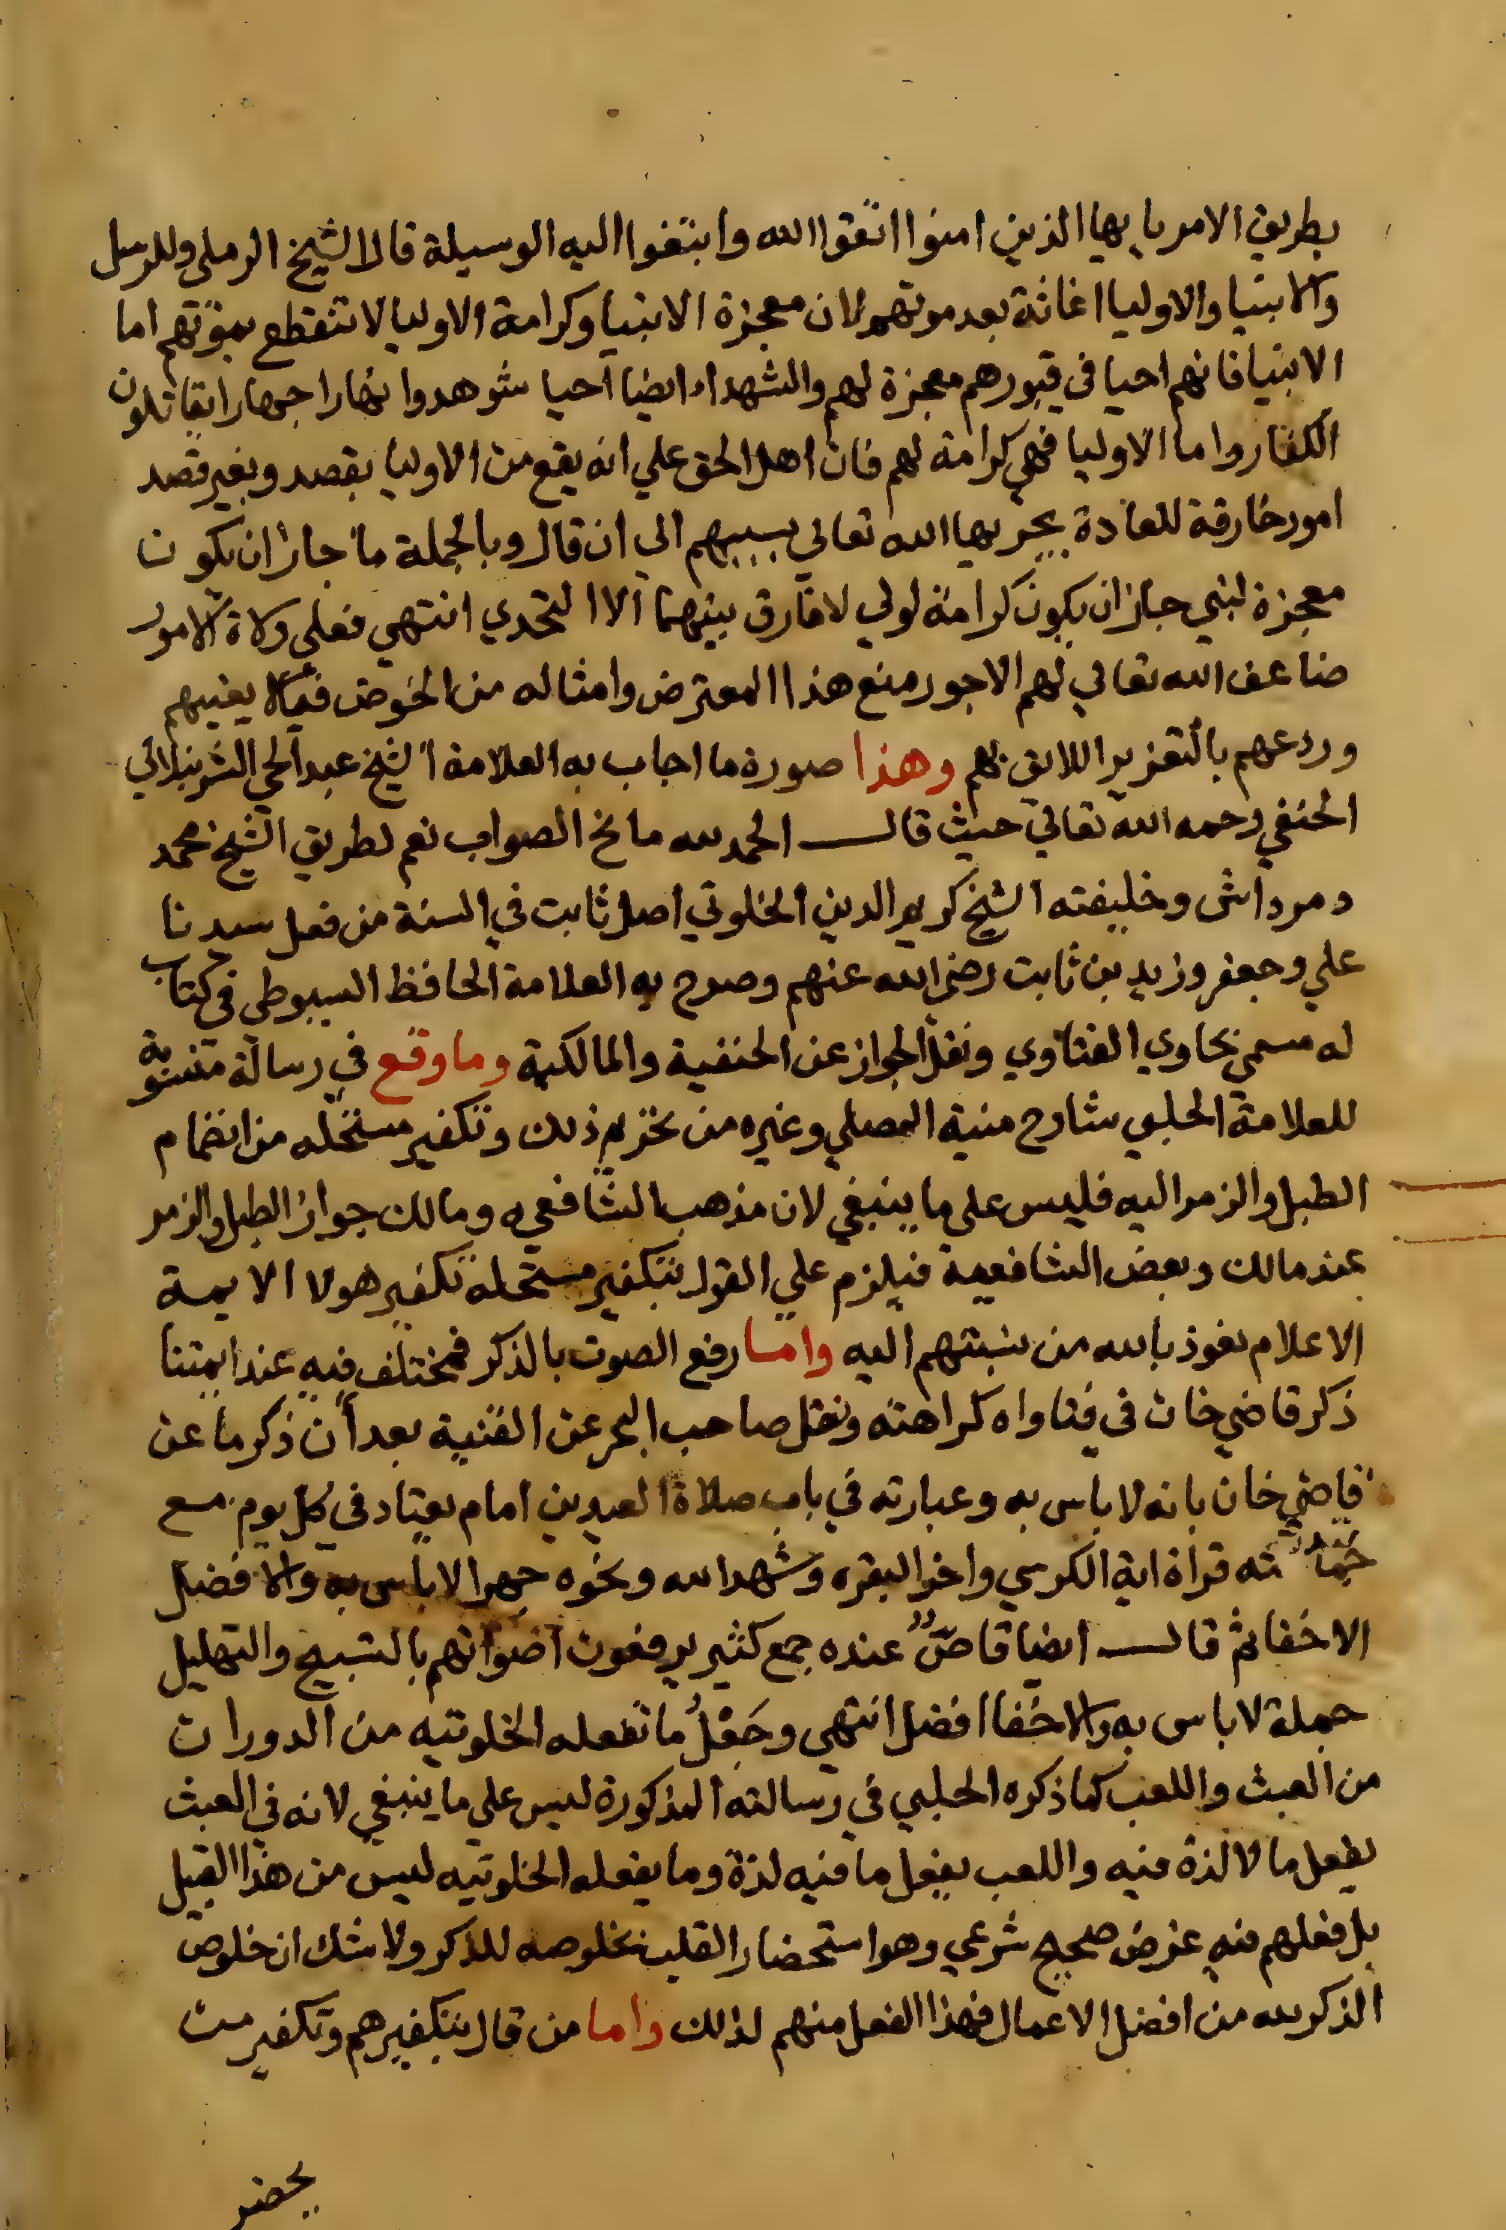 بطريق الامر يا يها الذين امنوا اتقوا الله وابتغوا اليه الوسيلة قال الشيخ الرملى وللرسل
والانبيا والاوليا اغاثة بعد موتهم لان معجزة الانبيا وكرامة الاوليا لا تنقطع بموتهم اما
الانبيا فانهم احيا في قبورهم معجزة لهم والشهداء ايضا احيا شوهدوا نهارا جهارا يقاتلون
الكفار واما الاوليا فهي كرامة لهم فان اهل الحق علي انه يقع من الاوليا بقصد وبغير قصد
امور خارقة للعادة يجريها الله تعالي بسببهم الي ان قال وبالجملة ما جاز ان يكون
معجزة لنبي جاز ان يكون كرامة لولي لا فارق بينهما الا التحدي انتهي فعلي ولاة الامور
ضاعف الله تعالي لهم الاجور منع هذا المعترض وامثاله من الخوض فيما لا يعنيهم
وردعهم بالتعزير اللايق بهم وهذا صورة ما اجاب به العلامة الشيخ عبد الحي الشرنبلالي
الحنفي رحمه الله تعالي حيث قال الحمد لله مانح الصواب نعم لطريق الشيخ محمد
دمرداش وخليفته الشيخ كريم الدين الخلوتي اصل ثابت في السنة من فعل سيدنا
علي وجعفر وزيد بن ثابت رضي الله عنهم وصرح به العلامة الحافظ السيوطي في كتاب
له مسمي بحاوي الفتاوي ونقل الجواز عن الحنفية والمالكية وما وقع في رسالة منسوبة
للعلامة الحلبي شارح منية المصلي وغيره من تحريم ذلك وتكفير مستحله من انضمام
الطبل والزمر اليه فليس على ما ينبغي لان مذهب الشافعي ومالك جواز الطبل والزمر
عند مالك وبعض الشافعية فيلزم علي القول بتكفير مستحله تكفير هولا الايمة
الاعلام نعوذ بالله من نسبتهم اليه واما رفع الصوت بالذكر فمختلف فيه عند ايمتنا
ذكر قاضي خان في فتاواه كراهته ونقل صاحب البحر عن القنية بعد أن ذكر ما عن
قاضي خان بانه لا باس به وعبارته في باب صلاة العيدين امام يعتاد في كل يوم مع
جماعته قراة اية الكرسي واخر البقره وشهد الله ونحوه جهرا لا باس به والافضل
الاخفا ثم قال ايضا قاصٌّ عنده جمع كثير يرفعون اصواتهم بالتسبيح والتهليل
جملة لا باس به والاخفا افضل انتهي وجَعْلُ ما تفعله الخلوتيه من الدورات
من العبث واللعب كما ذكره الحلبي في رسالته المذكورة ليس علي ما ينبغي لانه في العبث
يفعل ما لا لذة فيه واللعب يفعل ما فيه لذة وما يفعله الخلوتيه ليس من هذا القبيل
بل فعلهم فيه غرض صحيح شرعي وهو استحضار القلب بخلوصه للذكر ولا شك ان خلوص
الذكر لله من افضل الاعمال فهذا الفعل منهم لذلك واما من قال بتكفيرهم وتكفير من
يحضر